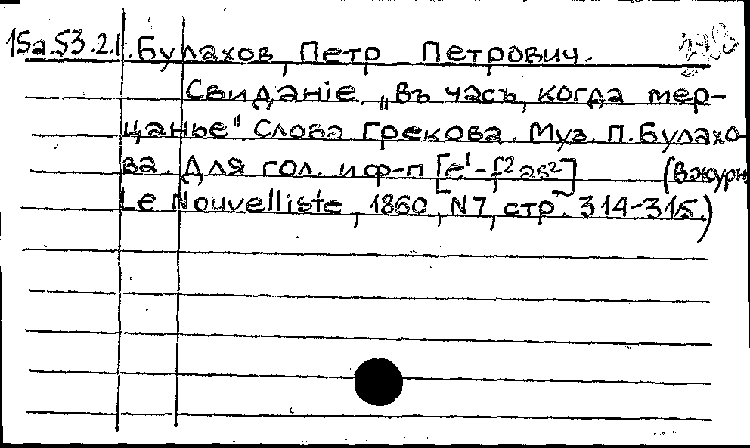 15a.53.2.1. Булахов, Петр Петрович.
Свиданiе. „Въ часъ, когда мер-
цанье" Слова Грекова. Муз. П. Булахо-
ва. Для гол. и ф-п [e¹-f² as²] (в журн
Le Nouvelliste, 1860, N7, стр. 314-315.)